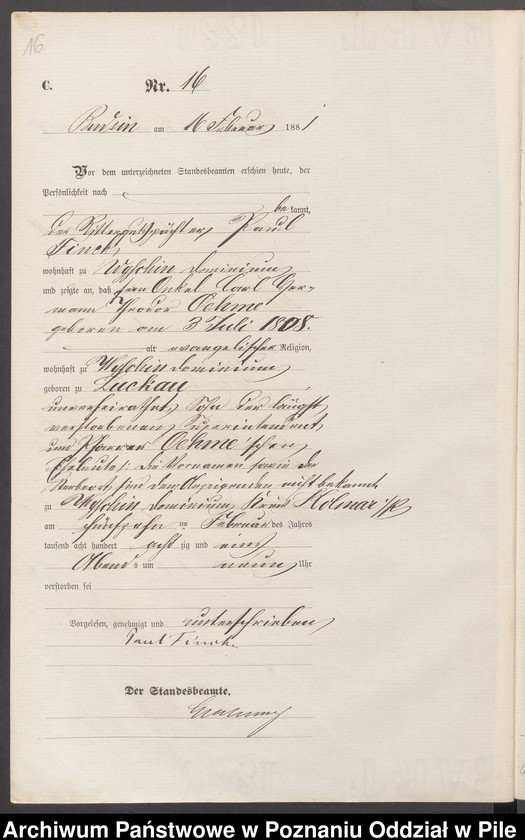 16
C. Nr. 16
Budsin am 16 Februar 1881
Vor dem unterzeichneten Standesbeamten erschien heute, der
Persönlichkeit nach
bekannt,
der Rittergutspächter Paul
Finck
wohnhaft zu Wyschin Dominium
und zeigte an, daß sein Onkel Carl Her-
mann Theodor Oehme
geboren am 3 Juli 1808.
alt evangelischer Religion,
wohnhaft zu Wyschin Dominium
geboren zu Luckau,
unverheirathet, Sohn der längst
verstorbenen Superintendent
und Pfarrer Oehme'schen
Eheleute /: die Vornamen sowie der
Sterbeort sind dem Anzeigenden nicht bekannt
zu Wyschin Dominium Kreis Kolmar i/P
am fünfzehn ten Februar des Jahres
tausend acht hundert acht zig und eins
Abends um neun Uhr
verstorben sei
Vorgelesen, genehmigt und unterschrieben
Paul Finck.
Der Standesbeamte.
Archiwum Państwowe w Poznaniu Oddział w Pile